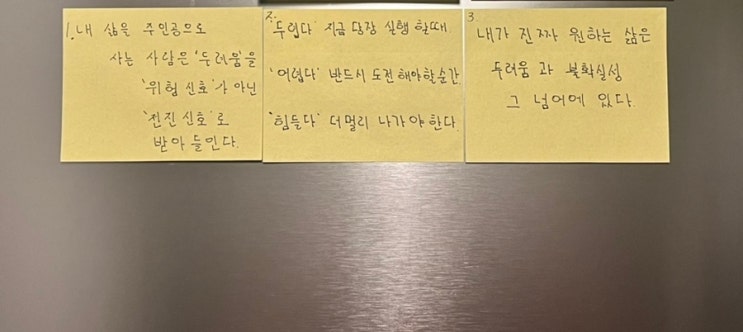 1. 내 삶을 주인공으로
사는 사람은 '두려움'을
'위험 신호'가 아닌
'전진 신호'로
받아 들인다.
2. '두렵다' 지금 당장 실행 할때
'어렵다' 반드시 도전 해야할 순간
'힘들다' 더 멀리 나가야 한다.
3. 내가 진짜 원하는 삶은
두려움과 불확실성
그 넘어에 있다.